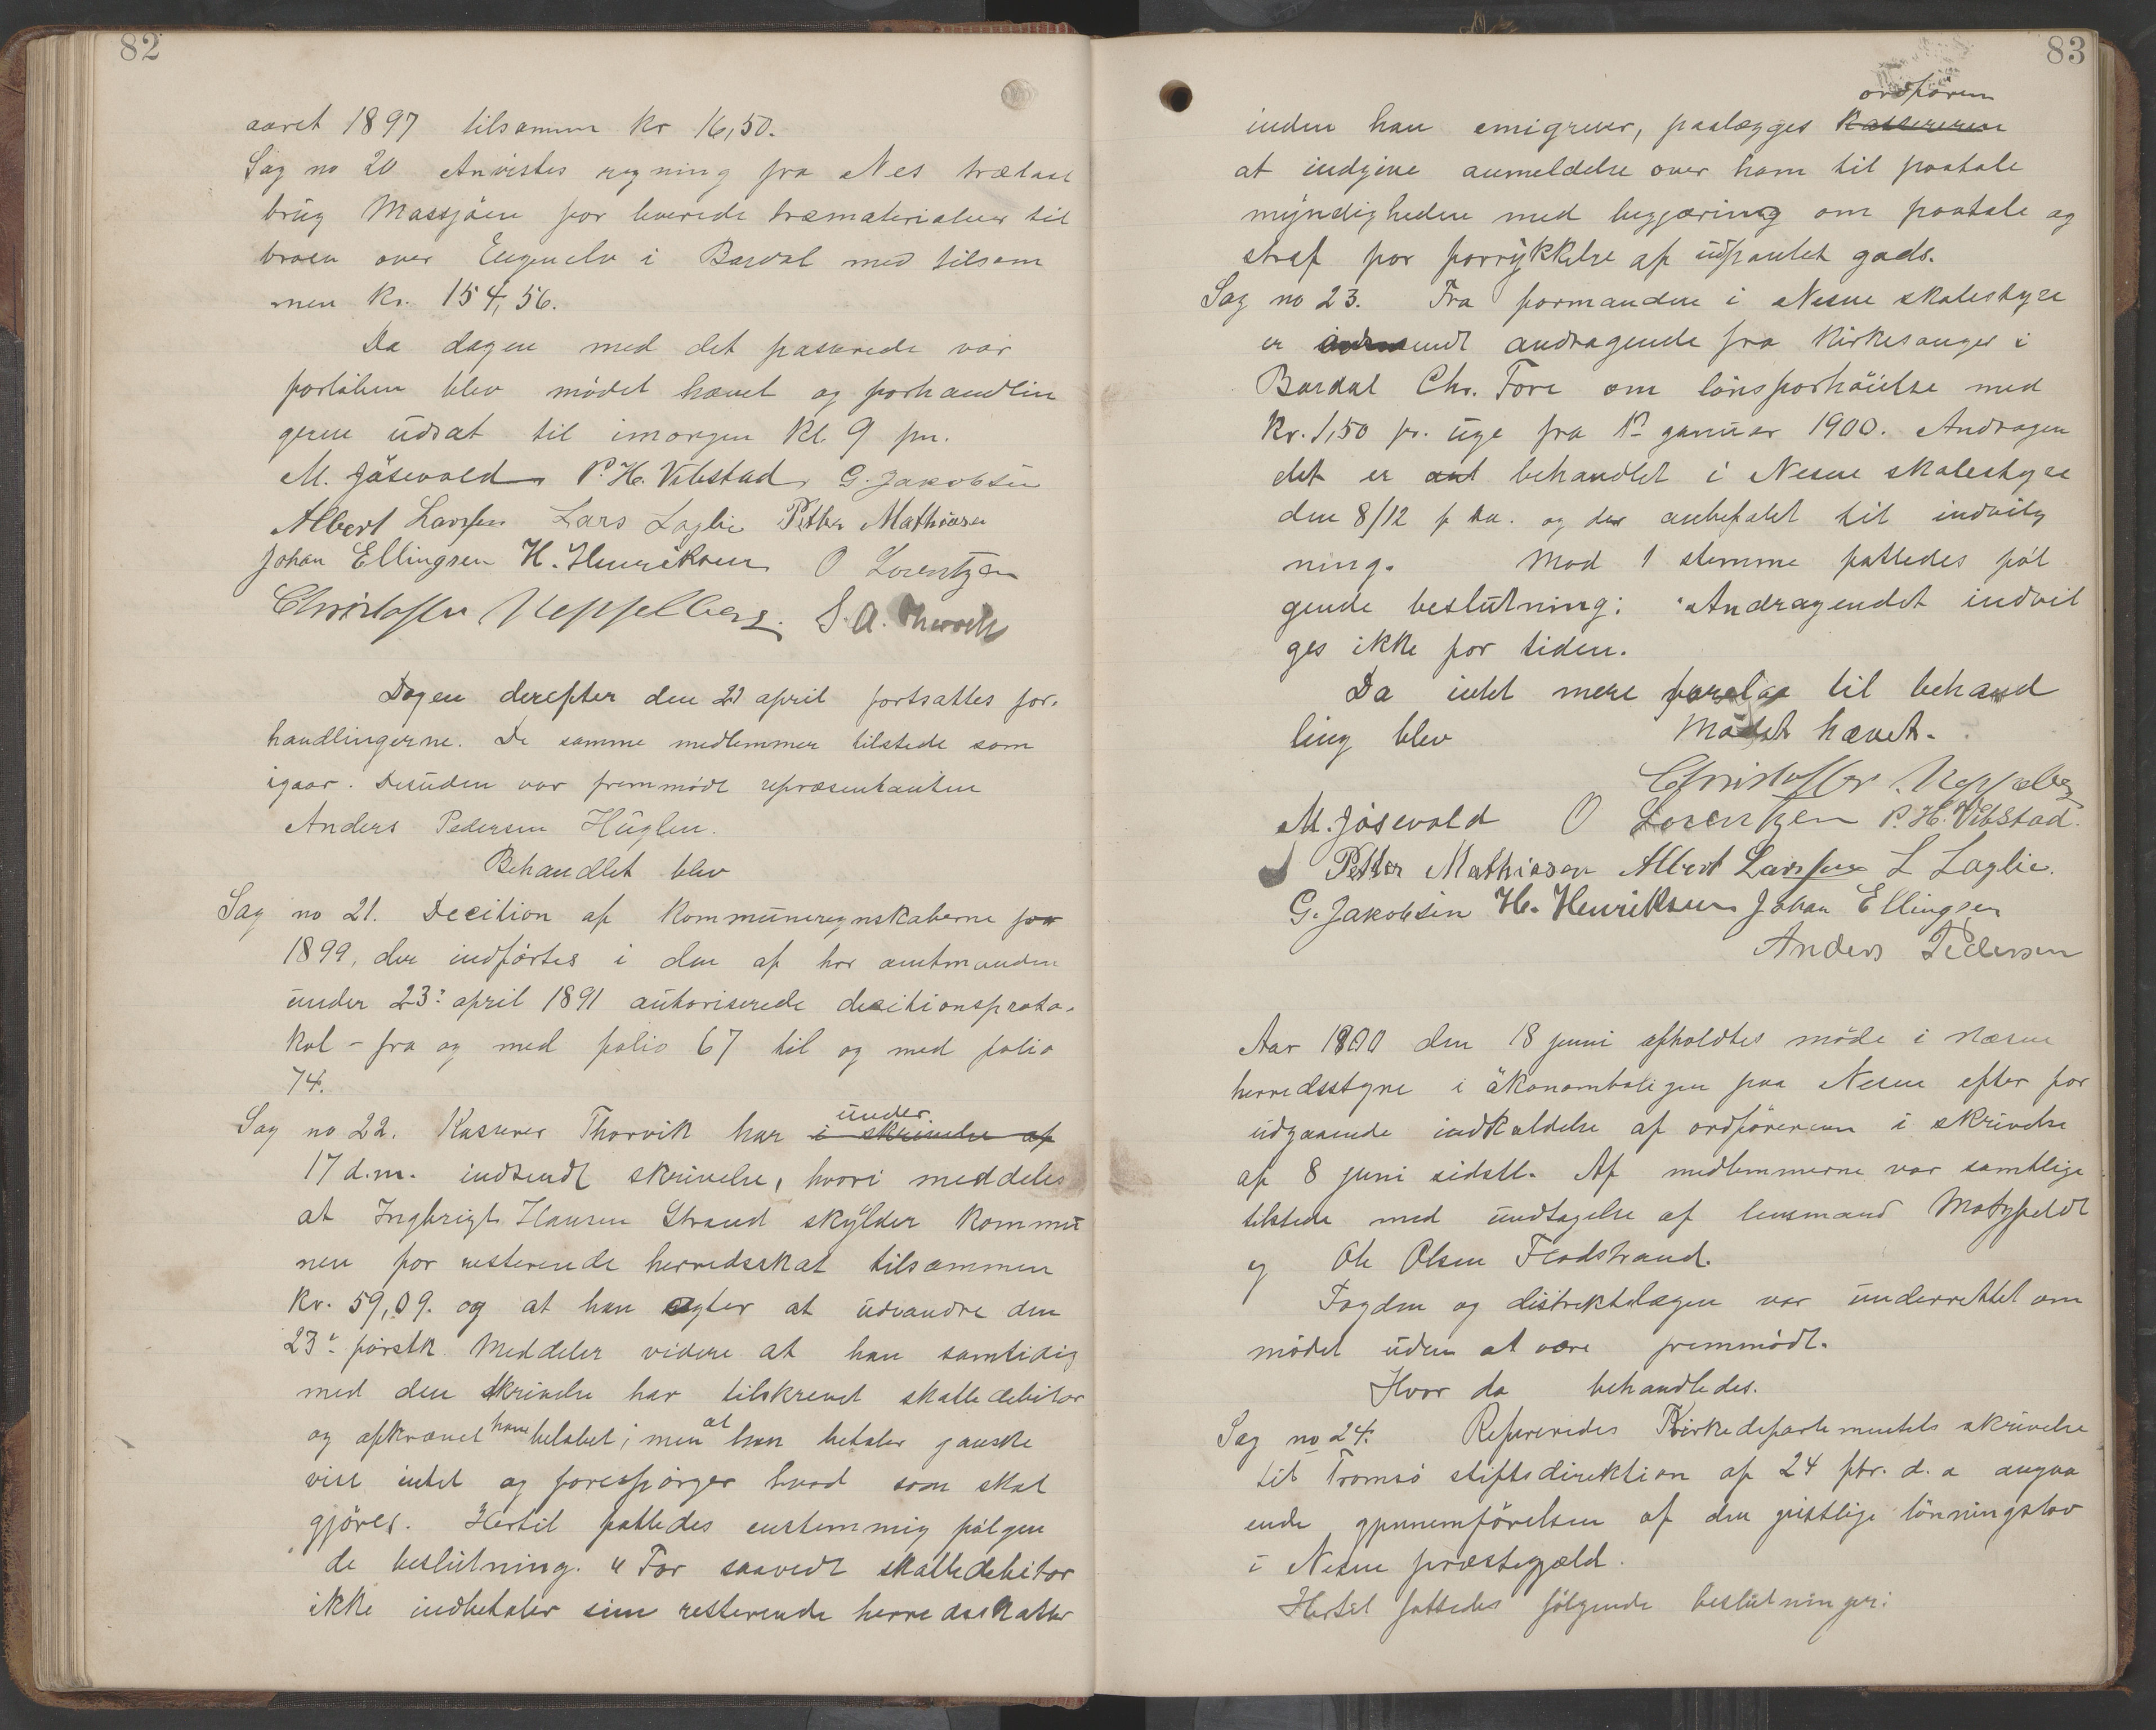 82
aaret 1897 tilsammen kr 16,50.
Sag no 20 Anvistes regning fra Nes trælast
brug Massjöen for leverede træmaterialier til
broen over Lugenelv i Bardal med tilsam
men kr. 154,56.
Da dagen med det passerede var
forlöben blev mödet hævet og forhandlin
gerne udsat til imorgen kl. 9 fm.
M. Jösevold P. H. Vibstad G. Jakobsen
Albert Larssen Lars Laglie Petter Mathiasen
Johan Ellingsen H. Henriksen O Lorentzen
Christoffer Neppelberg. S. A. Thorvik
Dagen derefter den 21 april fortsattes for-
handlingerne. De samme medlemmer tilstede som
igaar. Desuden var fremmödt repræsentanten
Anders Pedersen Huglen.
Behandlet blev
Sag no 21. Decition af kommuneregnskaberne for
1899, der indförtes i den af hr amtmanden
under 23: april 1891 autoriserede decitionsproto-
kol – fra og med folio 67 til og med folio
74.
Sag no 22. Kasserer Thorvik har i skrivelse af under
17 d.m. indsendt skrivelse, hvori meddeles
at Ingbrigt Hansen Strand skylder kommu
nen for resterende herredsskat tilsammen
kr. 59,09. og at han agter at udvandre den
23: förstk. Meddeler videre at han samtidig
med den skrivelse har tilskrevet skattedebitor
og afkrævet ham belöbet; men at han betaler ganske
vist intet og forespörger hvad som skal
gjöres. Hertil fattedes enstemmig fölgen
de beslutning. "For saavidt skattedebitor
ikke indbetaler sine resterende herredsskatter
83
inden han emigrerer, paalægges kassereren ordfören
at indgive anmeldelse over ham til paatale
myndigheden med begjæring om paatale og
straf for forrykkelse af udpantet gods.
Sag no 23. Fra formanden i Nesne skolestyre
er indsendt andragende fra kirkesanger i
Bardal Chr. Fore om lönsforhöielse med
kr. 1,50 pr. uge fra 1ste januar 1900. Andragen
det er ant behandlet i Nesne skolestyre
den 8/12 f. aa. og der anbefalet til indvilg
ning. Mod 1 stemme fattedes föl
gende beslutning: "Andragendet indvil
ges ikke for tiden.
Da intet mere forelaa til behand
ling blev Mödet hævet.
Christoffer Neppelberg
M. Jösevold O Lorentzen P. H. Vibstad.
Petter Mathiasen Albert Larssen L Laglie.
G. Jakobsen H. Henriksen Johan Ellingsen
Anders Pedersen
Aar 1900 den 18 juni afholdtes möde i Næsne
herredsstyre i ökonomboligen paa Nesne efter for
udgaaende indkaldelse af ordföreren i skrivelse
af 8 juni sidstl. Af medlemmerne var samtlige
tilstede med undtagelse af lensmand Motzfeldt
og Ole Olsen Flodstrand.
Fogden og distriktslægen var underrettet om
mödet uden at være fremmödt.
Hvor da behandledes.
Sag no 24. Refereredes Kirkedepartementets skrivelse
til Tromsö stiftsdirektion af 24 fbr. d. a angaa
ende gjennemförelsen af den geistlige lönningslov
i Nesne præstegjæld.
Hertil fattedes fölgende beslutninger: